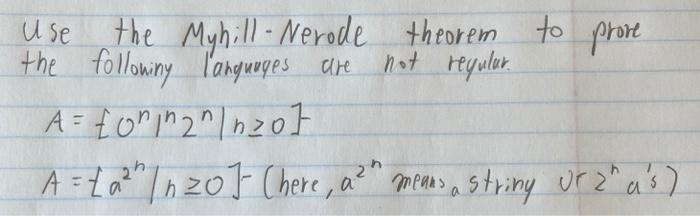 Use the Myhill-Nerode theorem to prove
the following languages are not regular.
A = {0ⁿ1ⁿ2ⁿ | n ≥ 0}
A = {a^2ⁿ | n ≥ 0} (here, a^2ⁿ means a string of 2ⁿ a's)